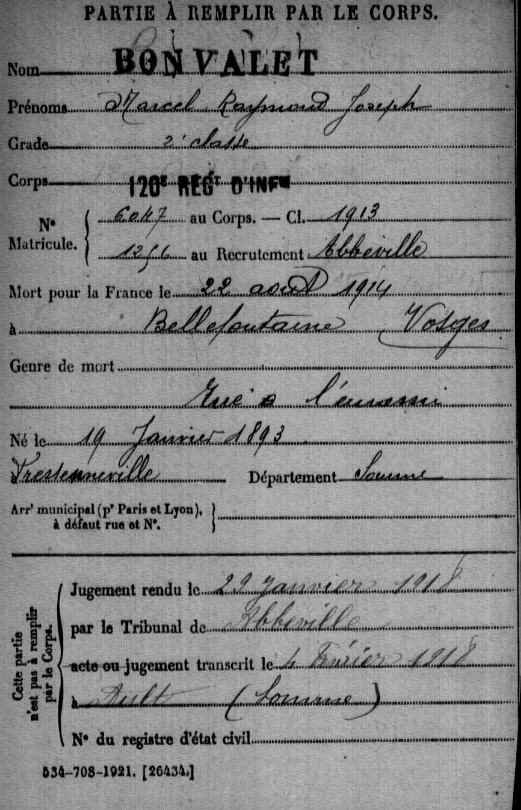 PARTIE À REMPLIR PAR LE CORPS.
Nom BONVALET
Prénoms Marcel Raymond Joseph
Grade 2e classe
Corps 120E REGT D'INFIE
N° Matricule. { 6047 au Corps. — Cl. 1913
1256 au Recrutement Abbeville
Mort pour la France le 22 août 1914
à Bellefontaine Vosges
Genre de mort
Tué à l'ennemi
Né le 19 Janvier 1893
Fressenneville Département Somme
Arrt municipal (pr Paris et Lyon), à défaut rue et N°. }
Cette partie n'est pas à remplir par le Corps.
Jugement rendu le 29 janvier 1918
par le Tribunal de Abbeville
acte ou jugement transcrit le 4 Février 1918
à Ault (Somme)
N° du registre d'état civil
534-708-1921. [26434.]